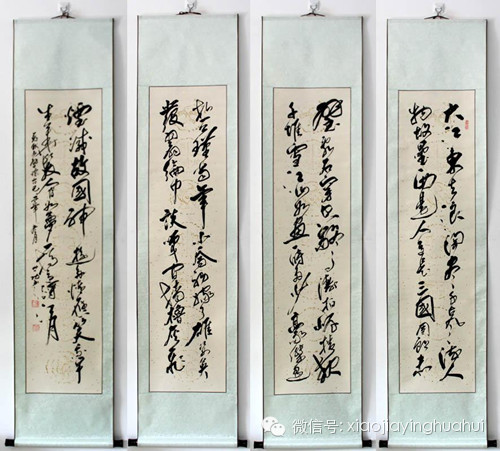 大江東去浪淘盡千古風流人
物故壘西邊人道是三國周郎赤
壁亂石穿空驚濤拍岸捲起
千堆雪江山如畫一時多少豪傑遙
想公瑾當年小喬初嫁了雄姿英
發羽扇綸巾談笑間檣櫓灰飛
煙滅故國神遊多情應笑我早
生華髮人間如夢一尊還酹江月
微信号: xiaojiayinghuahui